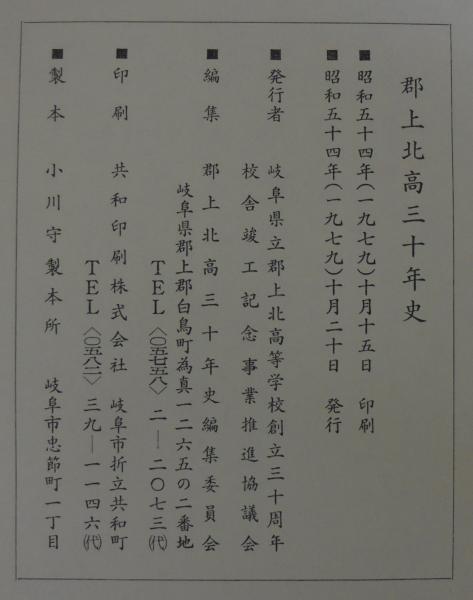 郡上北高三十年史
■昭和五十四年(一九七九)十月十五日　印刷
■昭和五十四年(一九七九)十月二十日　発行
■発行者　岐阜県立郡上北高等学校創立三十周年
校舎竣工記念事業推進協議会
■編集　郡上北高三十年史編集委員会
岐阜県郡上郡白鳥町為真一二六五の二番地
TEL〈〇五七五八〉二―二〇七三(代)
■印刷　共和印刷株式会社　岐阜市折立共和町
TEL〈〇五八二〉三九―一一四六(代)
■製本　小川守製本所　岐阜市忠節町一丁目